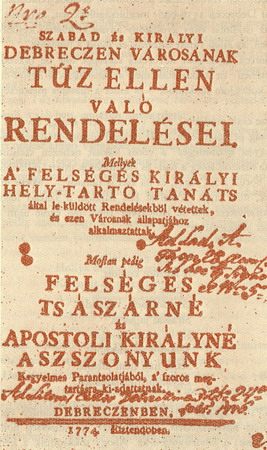 Nro 2.
SZABAD és KIRALYI
DEBRECZEN VÁROSÁNAK
TŰZ ELLEN
VALÓ
RENDELÉSEI.
Mellyek
A' FELSÉGES KIRÁLYI
HELY-TARTÓ TANÁTS
által le-küldött Rendelésekből vétettek,
és ezen Városnak állapatjához
alkalmaztattak.
Mostan pedig
FELSÉGES
TSÁSZÁRNÉ
és
APOSTOLI KIRÁLYNÉ
ASZSZONYUNK
Kegyelmes Parantsolatjából, a' szoros meg-
tartásra ki-adattatnak.
DEBRECZENBEN,
1774. Esztendőben.